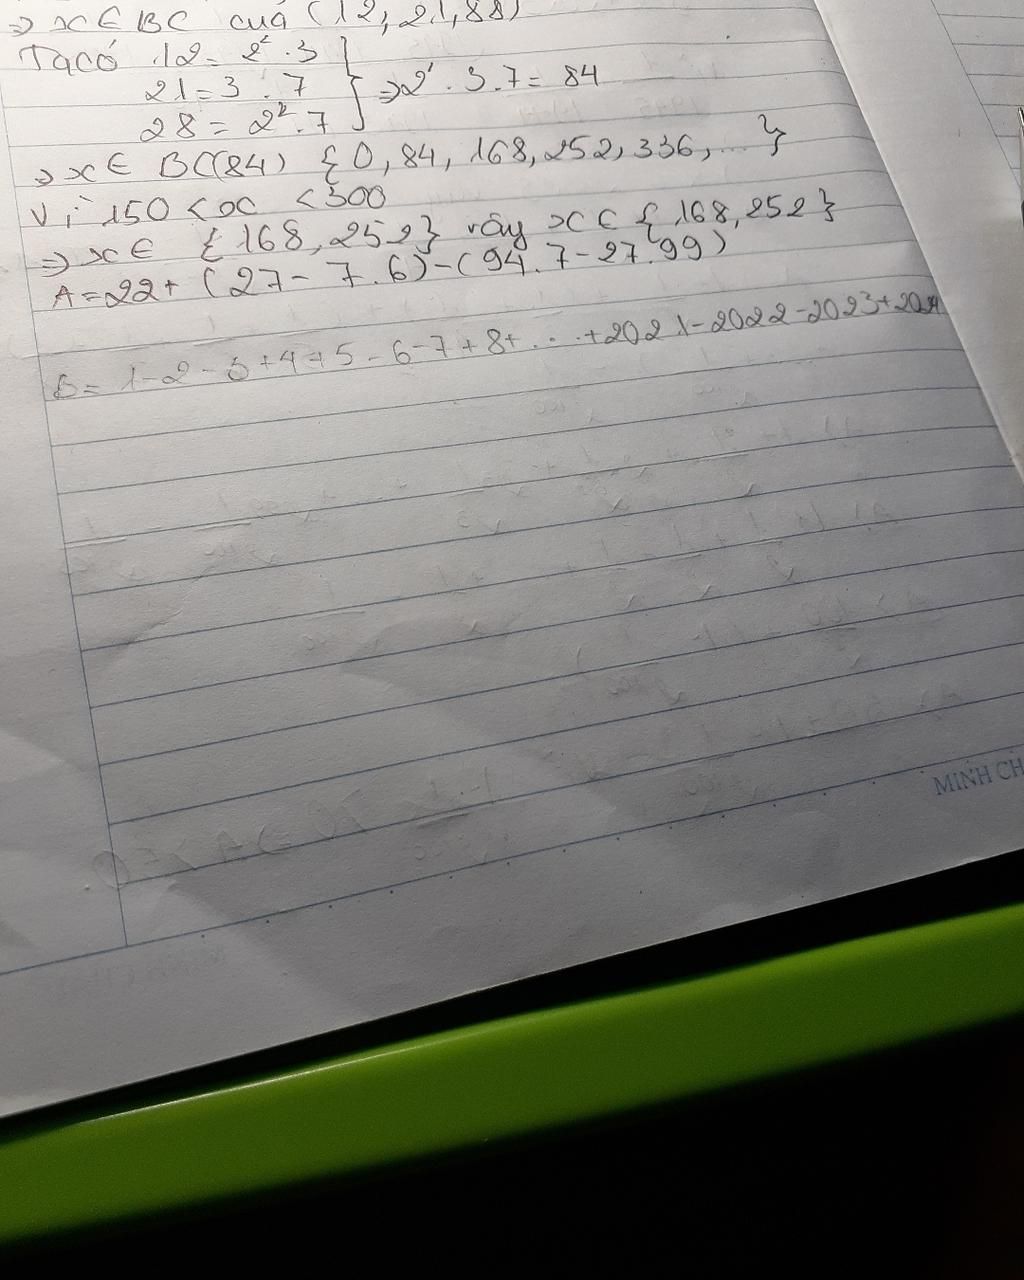 => x ∈ BC của (12, 21, 88)
Tacó 12 = 2². 3
21 = 3 . 7 } => 2² . 3 . 7 = 84
28 = 2² . 7
=> x ∈ BC(84) {0, 84, 168, 252, 336, ... }
Vì 150 < x < 300
=> x ∈ {168, 252} vậy x ∈ {168, 252}
A = 22 + (27 - 7.6) - (94.7 - 27.99)
B = 1 - 2 - 3 + 4 + 5 - 6 - 7 + 8 + ... + 2021 - 2022 - 2023 + 2024
MINH CH